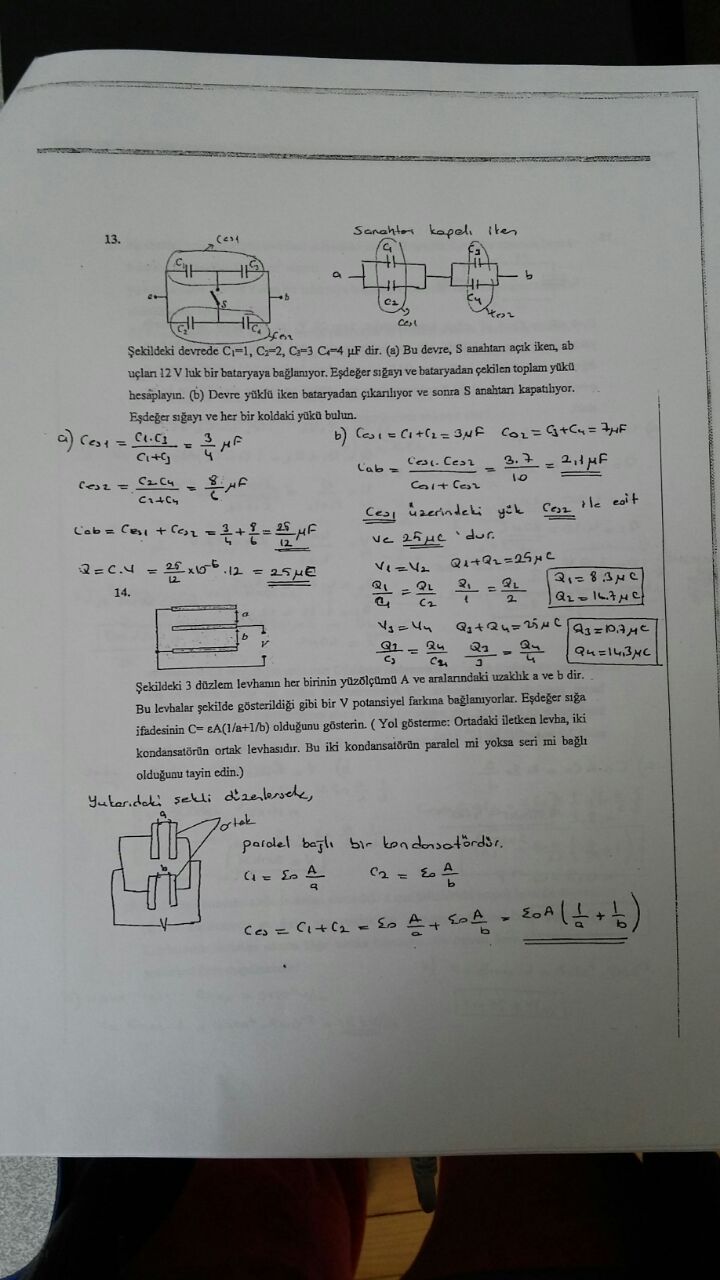 13.
Ceş1
Sanahtarı kapalı iken
C1 C3
a S b
C2 C4
Ceş2
C1 C3
a b
C2 C4
Ceş1 Ceş2
Şekildeki devrede C₁=1, C₂=2, C₃=3 C₄=4 μF dir. (a) Bu devre, S anahtarı açık iken, ab
uçları 12 V luk bir bataryaya bağlanıyor. Eşdeğer sığayı ve bataryadan çekilen toplam yükü
hesaplayın. (b) Devre yüklü iken bataryadan çıkarılıyor ve sonra S anahtarı kapatılıyor.
Eşdeğer sığayı ve her bir koldaki yükü bulun.
a) Ceş1 = C1.C3/C1+C3 = 3/4 μF
Ceş2 = C2C4/C2+C4 = 8/6 μF
Cab = Ceş1 + Ceş2 = 3/4 + 8/6 = 25/12 μF
Q = C.V = 25/12 x10⁻⁶.12 = 25μC
b) Ceş1 = C1+C2 = 3μF Ceş2 = C3+C4 = 7μF
Cab = Ceş1.Ceş2/Ceş1+Ceş2 = 3.7/10 = 2,1μF
Ceş1 üzerindeki yük Ceş2 ile eşit
ve 25μC 'dur.
V1=V2 Q1+Q2=25μC
Q1/C1 = Q2/C2 Q1/1 = Q2/2 Q1=8.3μC
Q2=16.7μC
V3=V4 Q3+Q4=25μC
Q3/C3 = Q4/C4 Q3/3 = Q4/4 Q3=10.7μC
Q4=14,3μC
14.
a
b V
Şekildeki 3 düzlem levhanın her birinin yüzölçümü A ve aralarındaki uzaklık a ve b dir.
Bu levhalar şekilde gösterildiği gibi bir V potansiyel farkına bağlanıyorlar. Eşdeğer sığa
ifadesinin C= εA(1/a+1/b) olduğunu gösterin. ( Yol gösterme: Ortadaki iletken levha, iki
kondansatörün ortak levhasıdır. Bu iki kondansatörün paralel mi yoksa seri mi bağlı
olduğunu tayin edin.)
Yukarıdaki şekli düzenlersek,
a ortak
b
V
paralel bağlı bir kondansatördür.
C1 = ε0 A/a C2 = ε0 A/b
Ceş = C1+C2 = ε0 A/a + ε0 A/b = ε0A(1/a + 1/b)